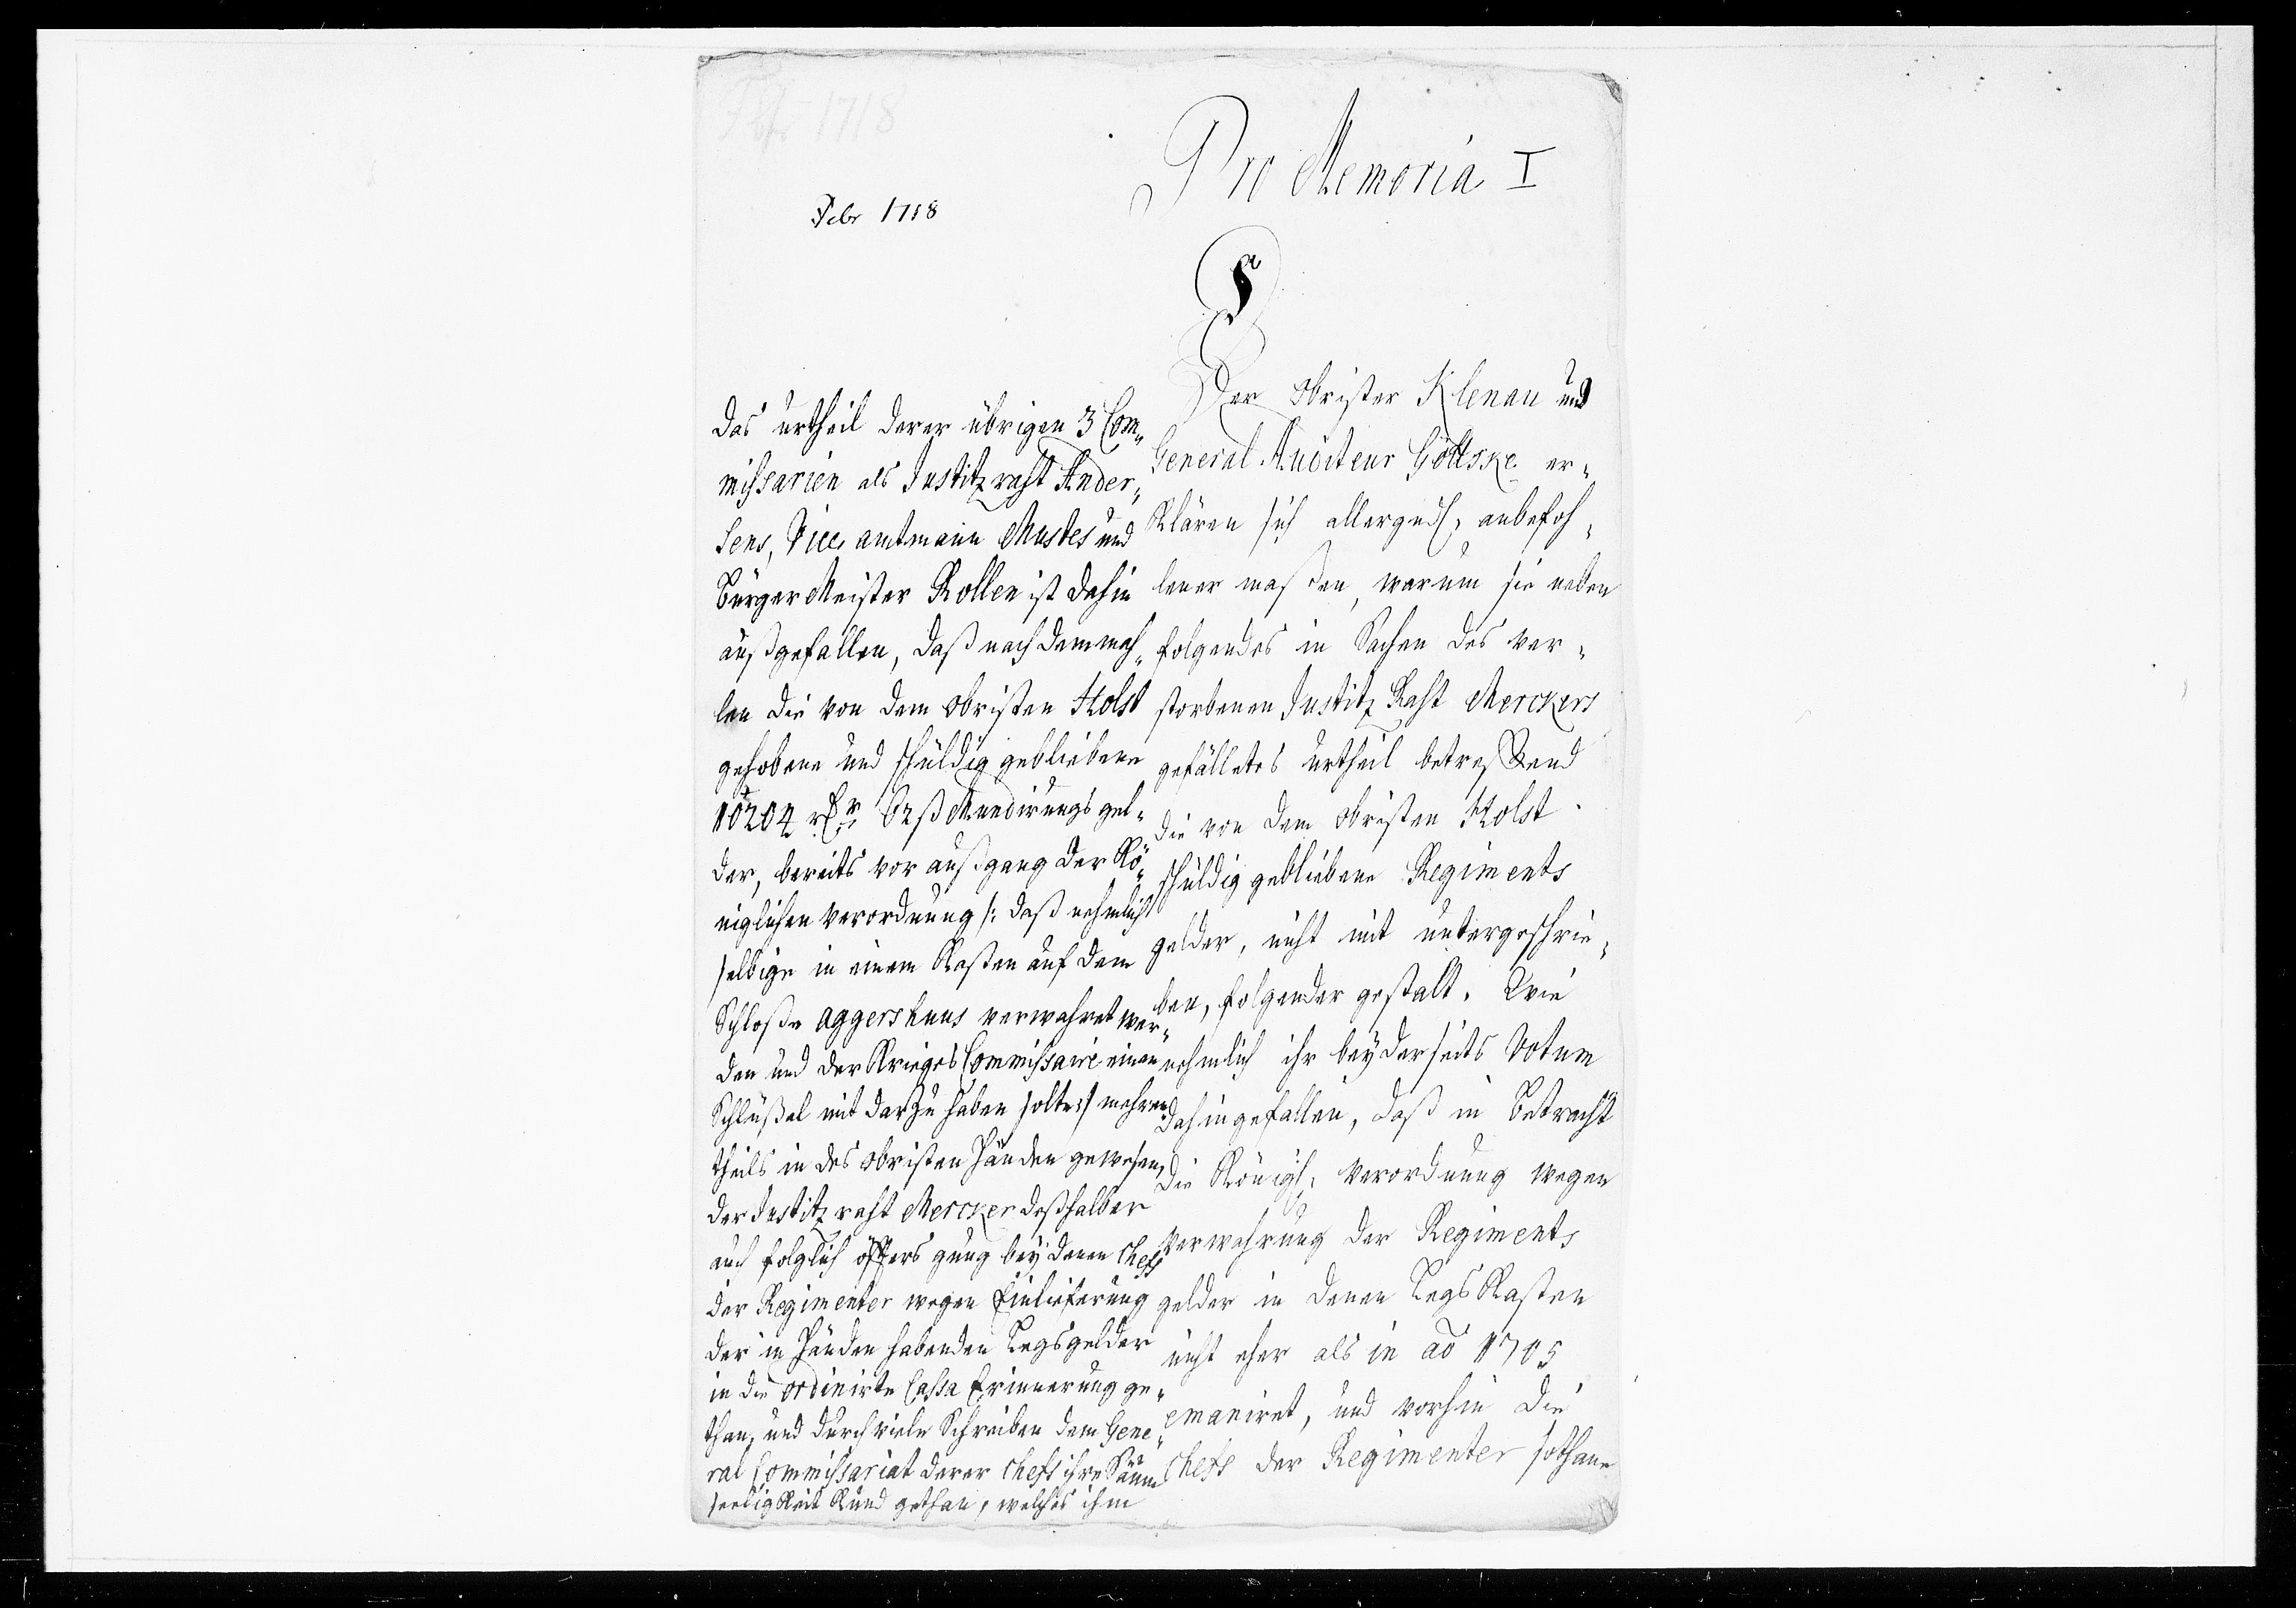 Febr 1718
Pro Memoria I
Febr 1718
Der Obrister Klenau und
General Auditeur Göttske er„
klären sich allergndst. anbefoh„
lener maßen, warum sie neben
folgendes in Sachen des ver„
storbenen Justitz Raht Merckers
gefälletes urtheil betreffend
die von dem Obristen Holst
schuldig gebliebene Regiments
gelder, nicht mit untergeschrie„
ben, folgender gestalt. Wie
nehmlich ihr beyderseits Votum
dahin gefallen, daß in Betracht
die Königl. Verordnung wegen
Verwahrung der Regiments
gelder in denen Regs Kasten
nicht eher als in ao 1705
emaniret, und vorhin die
Chefs der Regimenter sothane
das urtheil derer übrigen 3 Com„
missarien als Justitz raht Ander„
sens, Vice amtmann Mustes und
Bürger Meister Rollen ist dahin
außgefallen, daß nach dem mah„
len die von dem Obristen Holst
gehobene und schuldig gebliebene
10204 rthr 82ß Mundirungs gel„
der, bereits vor außgang der Kö„
niglichen Verordnung /: daß nehmlich
selbige in einem Kasten auf dem
Schloße Aggershuus verwahret wer„
den und der Krieges Commissaire einen
Schlüßel mit darzu haben solte :/ mehren
theils in des Obristen Händen gewesen,
der Justitz raht Mercker deßhalber
auch folglich öffters gnug bey denen Chefs
der Regimenter wegen Einlieferung
der in Händen habenden Regsgelder
in die ordinirte Cassa Erinnerung ge„
than, und durch viele Schreiben dem Gene„
ral Commissariat derer Chefs ihre Säum
seeligkeit kund gethan, welches ihm